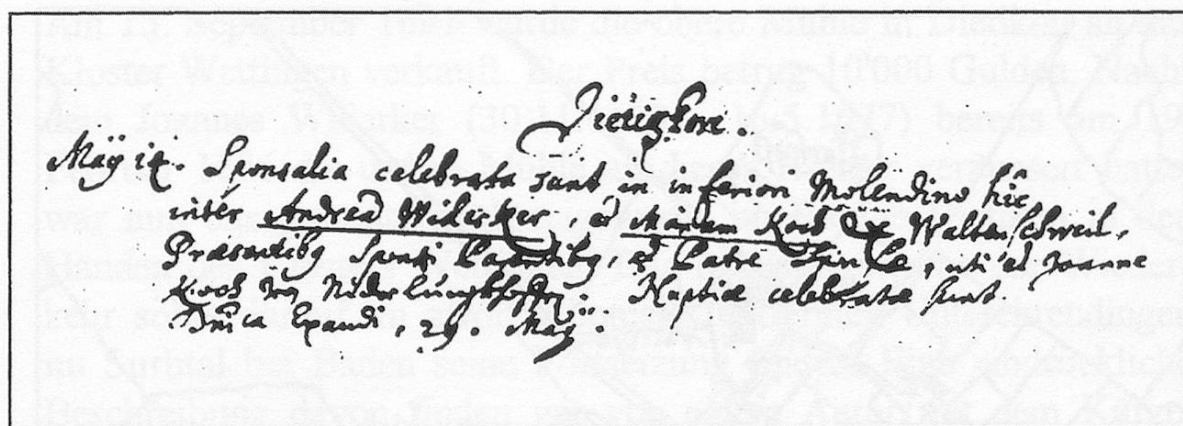 Dietigkon.
Maÿ 14. Sponsalia celebrata sunt in inferiori Molendino hîc
inter Andreā Widerker, et Mariam Koch ex Waltenschweil,
Præsentibg Sponsi Parentibg, et Patre Sponsæ, uti et Joanne
Koch von Niderlunghoffen. Nuptiæ celebratæ sunt
Dnîca Exaudi, 29. Maÿ.